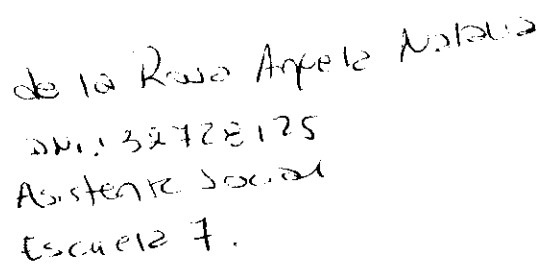 de la Rosa Angela Natalia
DNI: 32728125
Asistente Social
Escuela 7.